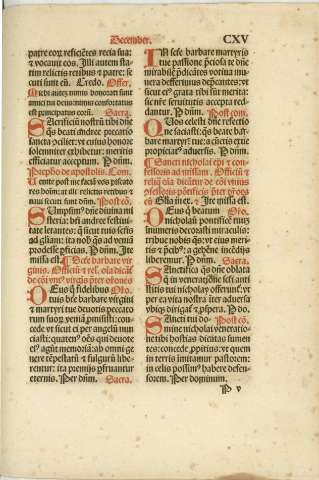 December.
CXV
patre eorum, reficientes recia sua:
et vocauit eos. Illi autem sta-
tim relictis retibus et patre: se
cuti sunt eum. Credo. Offer.
amici tui deus: nimis confortatus
est principatus eorum. Sacra.
Sacrificium nostrum tibi domine
quesumus beati andree precatio
sancta conciliet: vt cuius honore
solemniter exhibetur: meritis
efficiatur acceptum. Per dominum.
Prephatio de apostolis. Com.
Uenite post me faciam vos piscato
res hominum: at illi relictis retibus et
naui secuti sunt dominum. Postcom.
Sumpsimus domine diuina mi
steria: beati andree festiui
tate letantes: que sicut tuis sanctis
ad gloriam: ita nobis quesumus ad veniam
prodesse perficias. Per dominum. Ite
missa est. De sancta barbara vir
ginis. Officium et reliqua omnia dicantur
de communi vnius virginis preter orationes
Deus qui fidelibus Oratio.
tuis beate barbare virginis
et martyris tue deuotio precato
rum suorum premia promisisti: con-
cede vt sicut ei per angelum nun
ciasti:
ere tempestatum et fulgurum libe-
rentur: ita premiis perfruantur
eternis. Per dominum. Sacra.
In sancte barbare martyris
tue passione preciosa te domine
mirabilem predicantes votiua mu
nera defferimus deprecantes: vt
sicut eius grata tibi sunt merita:
sic nostre seruitutis accepta red-
dantur. Per dominum. Postcom.
Quos celesti domine refectio
ne saciasti: quesumus beate bar
bare martyris tue: a cunctis exue
propiciatus aduersis. Per dominum.
Sancti nicholai episcopi et con-
fessoris ad missam. Officium et
reliqua omnia dicantur de communi vnius
confessoris pontificis preter orationes
Gloria in excelsis. et Ite missa est.
Deus qui beatum Oratio.
nicholaum pontificem tuum in
numeris decorasti miraculis:
tribue nobis quesumus: vt eius meri-
tis et precibus: a gehenne incendiis
liberemur. Per dominum. Sacra.
Sanctifica quesumus domine oblata
que in veneratione sancti anti
stitis tui nicholay offerimus: vt
per ea vita nostra inter aduersa
vbique dirigatur et prospera. Per do.
Sancti tui do- Postcom.
mine nicholai veneratio-
ne tibi hostias dicatas sumen
tes: concede propitius: vt quem
in terris imitamur pastorem:
in celis possimus habere defen-
sorem. Per dominum.
P v